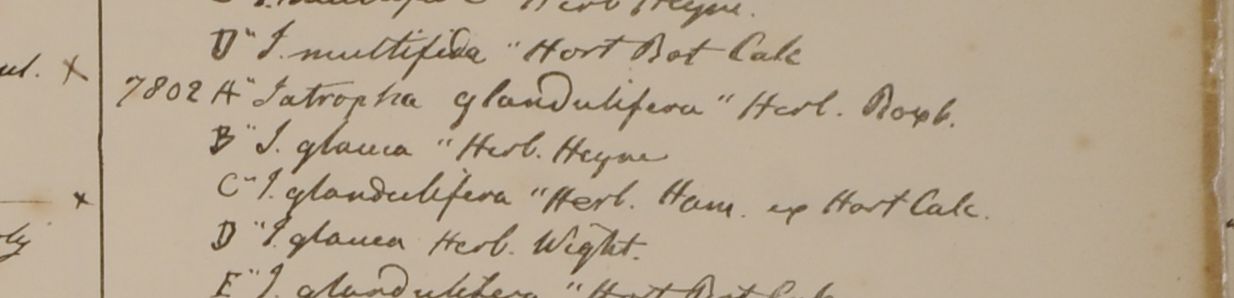 J. multifida " Herb Heyne.
D "J. multifida " Hort Bot Calc
ul. x
7802 A "Jatropha glandulifera " Herb. Roxb.
B "J. glauca " Herb. Heyne
C "J. glandulifera " Herb. Ham. ex Hort Calc.
x
D "J. glauca Herb. Wight.
E "J. glandulifera " Hort Bot Calc